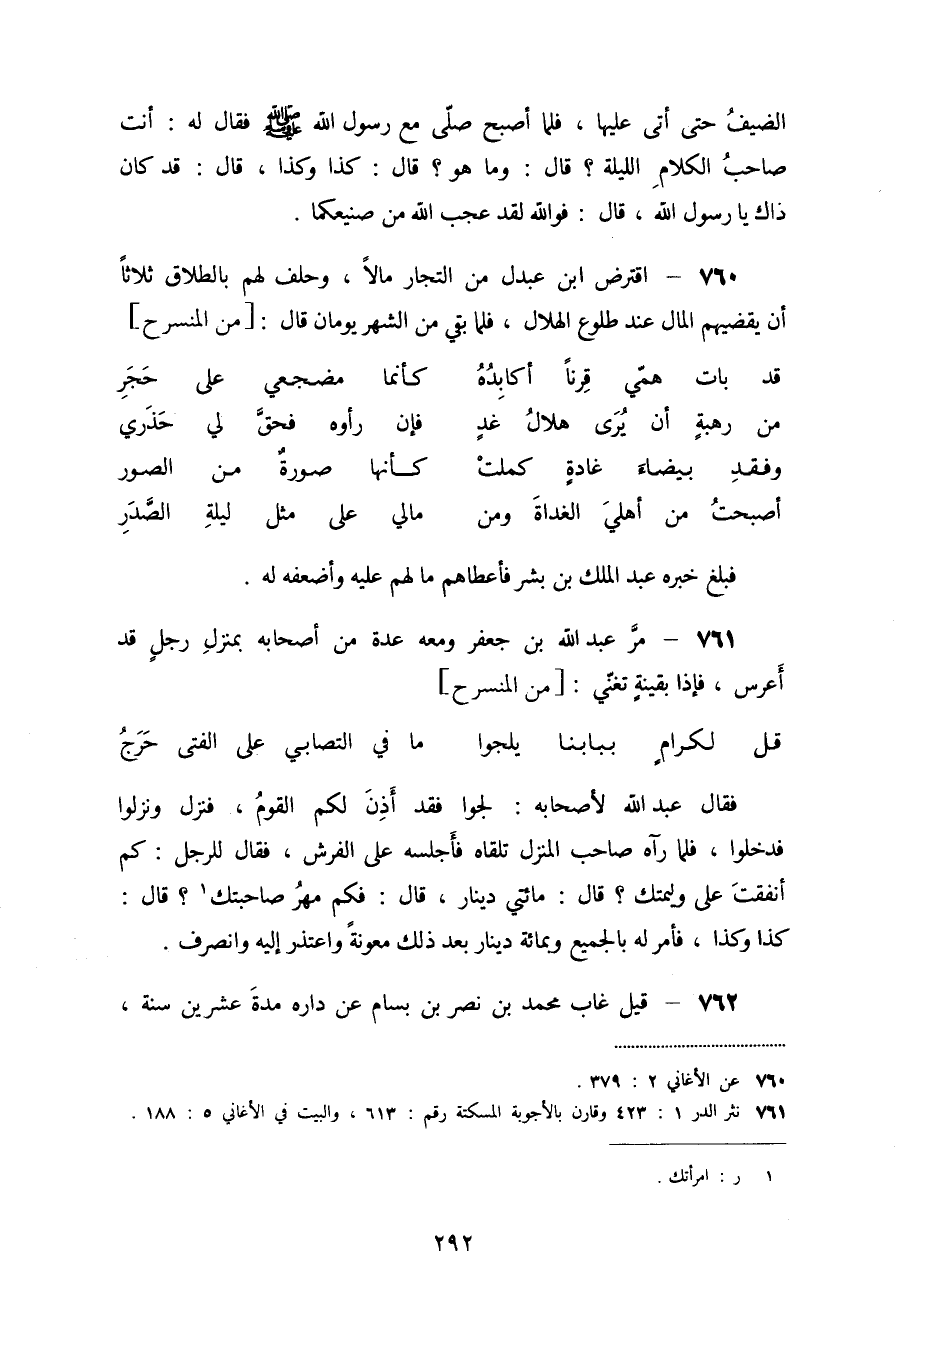 الضيفُ حتى أتى عليها ، فلما أصبح صلّى مع رسول الله ﷺ فقال له : أنت
صاحبُ الكلامِ الليلة ؟ قال : وما هو ؟ قال : كذا وكذا ، قال : قد كان
ذاك يا رسول الله ، قال : فوالله لقد عجب الله من صنيعكما .
٧٦٠ – اقترض ابن عبدل من التجار مالاً ، وحلف لهم بالطلاق ثلاثاً
أن يقضيهم المال عند طلوع الهلال ، فلما بقي من الشهر يومان قال : [من المنسرح]
قد بات همّي قِرناً أكابِدُهُ كأنما مضجعي على حَجَرِ
من رهبةٍ أن يُرَى هلالُ غدٍ فإن رأوه فحقَّ لي حَذَري
وفقدِ بيضاءَ غادةٍ كملتْ كأنها صورةٌ من الصور
أصبحتُ من أهليَ الغداةَ ومن مالي على مثل ليلةِ الصَّدَرِ
فبلغ خبره عبد الملك بن بشر فأعطاهم ما لهم عليه وأضعفه له .
٧٦١ – مرَّ عبد الله بن جعفر ومعه عدة من أصحابه بمنزلِ رجلٍ قد
أَعرس ، فإذا بقينةٍ تغنّي : [من المنسرح]
قل لكرامٍ ببابنا يلجوا ما في التصابي على الفتى حَرَجُ
فقال عبد الله لأصحابه : لجوا فقد أَذِنَ لكم القومُ ، فنزل ونزلوا
فدخلوا ، فلما رآه صاحب المنزل تلقاه فأَجلسه على الفرش ، فقال للرجل : كم
أنفقتَ على وليمتك ؟ قال : مائتي دينار ، قال : فكم مهرُ صاحبتك١ ؟ قال :
كذا وكذا ، فأمر له بالجميع وبمائة دينار بعد ذلك معونةً واعتذر إليه وانصرف .
٧٦٢ – قيل غاب محمد بن نصر بن بسام عن داره مدةَ عشرين سنة ،
٧٦٠ عن الأغاني ٢ : ٣٧٩ .
٧٦١ نثر الدر ١ : ٤٢٣ وقارن بالأجوبة المسكتة رقم : ٦١٣ ، والبيت في الأغاني ٥ : ١٨٨ .
١ ر : امرأتك .
٢٩٢